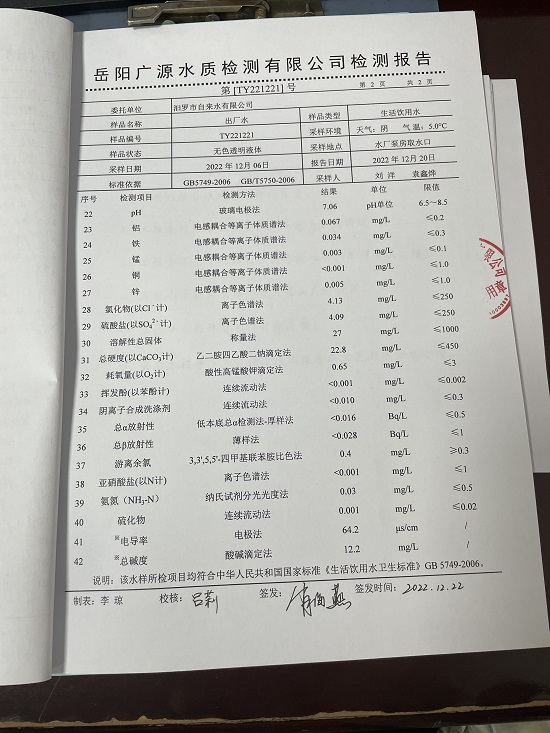 岳阳广源水质检测有限公司检测报告
第 [TY221221] 号 第 2 页 共 2 页
委托单位 汨罗市自来水有限公司
样品名称 出厂水 样品类型 生活饮用水
样品编号 TY221221 采样环境 天气：阴 气温：5.0℃
样品状态 无色透明液体 采样地点 水厂泵房取水口
采样日期 2022 年 12 月 06日 报告日期 2022 年 12月 20日
标准依据 GB5749-2006 GB/T5750-2006 采样人 刘 洋 袁鑫烨
序号 检测项目 检测方法 结果 单位 限值
22 pH 玻璃电极法 7.06 pH单位 6.5～8.5
23 铝 电感耦合等离子体质谱法 0.067 mg/L ≤0.2
24 铁 电感耦合等离子体质谱法 0.034 mg/L ≤0.3
25 锰 电感耦合等离子体质谱法 0.003 mg/L ≤0.1
26 铜 电感耦合等离子体质谱法 <0.001 mg/L ≤1.0
27 锌 电感耦合等离子体质谱法 0.005 mg/L ≤1.0
28 氯化物(以Cl⁻计) 离子色谱法 4.13 mg/L ≤250
29 硫酸盐(以SO₄²⁻计) 离子色谱法 4.09 mg/L ≤250
30 溶解性总固体 称量法 27 mg/L ≤1000
31 总硬度(以CaCO₃计) 乙二胺四乙酸二钠滴定法 22.8 mg/L ≤450
32 耗氧量(以O₂计) 酸性高锰酸钾滴定法 0.65 mg/L ≤3
33 挥发酚(以苯酚计) 连续流动法 <0.001 mg/L ≤0.002
34 阴离子合成洗涤剂 连续流动法 <0.010 mg/L ≤0.3
35 总α放射性 低本底总α检测法-厚样法 <0.016 Bq/L ≤0.5
36 总β放射性 薄样法 <0.028 Bq/L ≤1
37 游离余氯 3,3',5,5'-四甲基联苯胺比色法 0.4 mg/L ≥0.3
38 亚硝酸盐(以N计) 离子色谱法 <0.001 mg/L ≤1
39 氨氮（NH₃-N） 纳氏试剂分光光度法 0.03 mg/L ≤0.5
40 硫化物 连续流动法 0.001 mg/L ≤0.02
41 ※电导率 电极法 64.2 μs/cm /
42 ※总碱度 酸碱滴定法 12.2 mg/L /
说明：该水样所检项目均符合中华人民共和国国家标准《生活饮用水卫生标准》GB 5749-2006。
制表：李 琼 校核：吕莉 签发： 签发时间：2022.12.22
限公司
用章